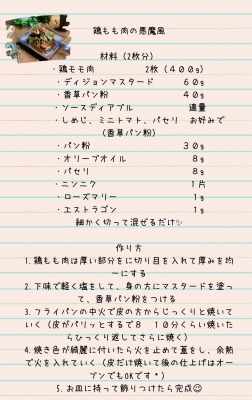 鶏もも肉の悪魔風
材料（2枚分）
・鶏モモ肉　2枚（400g）
・ディジョンマスタード　60g
・香草パン粉　40g
・ソースディアブル　適量
・しめじ、ミニトマト、パセリ　お好みで
（香草パン粉）
・パン粉　30g
・オリーブオイル　8g
・パセリ　8g
・ニンニク　1片
・ローズマリー　1g
・エストラゴン　1g
細かく切って混ぜるだけ✨
作り方
1.鶏もも肉は厚い部分をに切り目を入れて厚みを均
一にする
2.下味で軽く塩をして、身の方にマスタードを塗っ
て、香草パン粉をつける
3.フライパンの中火で皮の方からじっくりと焼いて
いく（皮がパリッとするで8　10分くらい焼いた
らひっくり返してさらに焼く）
4.焼き色が綺麗に付いたら火を止めて蓋をし、余熱
で火を入れていく（皮だけ焼いて後の仕上げはオー
ブンでもOKです*）
5.お皿に持って飾りつけたら完成😉